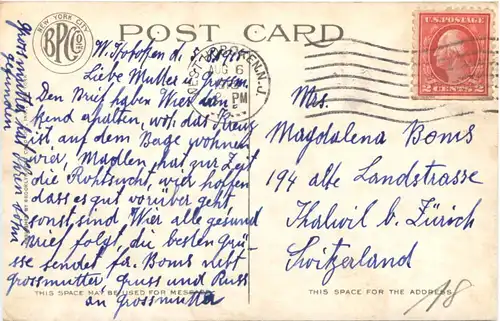 NEW YORK CITY
BPC
POST CARD
U.S. POSTAGE
2 CENTS 2
HOBOKEN. N.J.
AUG 6
PM
W. Hoboken d. 5.
Liebe Mutter u Grossm.
Den Brief haben Wier dan
kend erhalten, wo das Kreuz
ist, auf dem Bage wohnen
wier, Madlen hat zur Zeit
die Rohtsucht, wier hoffen
dass es gut vorüber geht
sonst sind Wier alle gesund
Brief folgt, die besten Grü-
sse sendet fa. Boms nebst
Grossmutter, Gruss und Kuss
an Grossmutter
Grossmutter hat
gefunden
Mrs.
Magdalena Boms
194 alte Landstrasse
Thalwil b. Zürich
Switzerland
THIS SPACE MAY BE USED FOR MESSAGE
THIS SPACE FOR THE ADDRESS
18